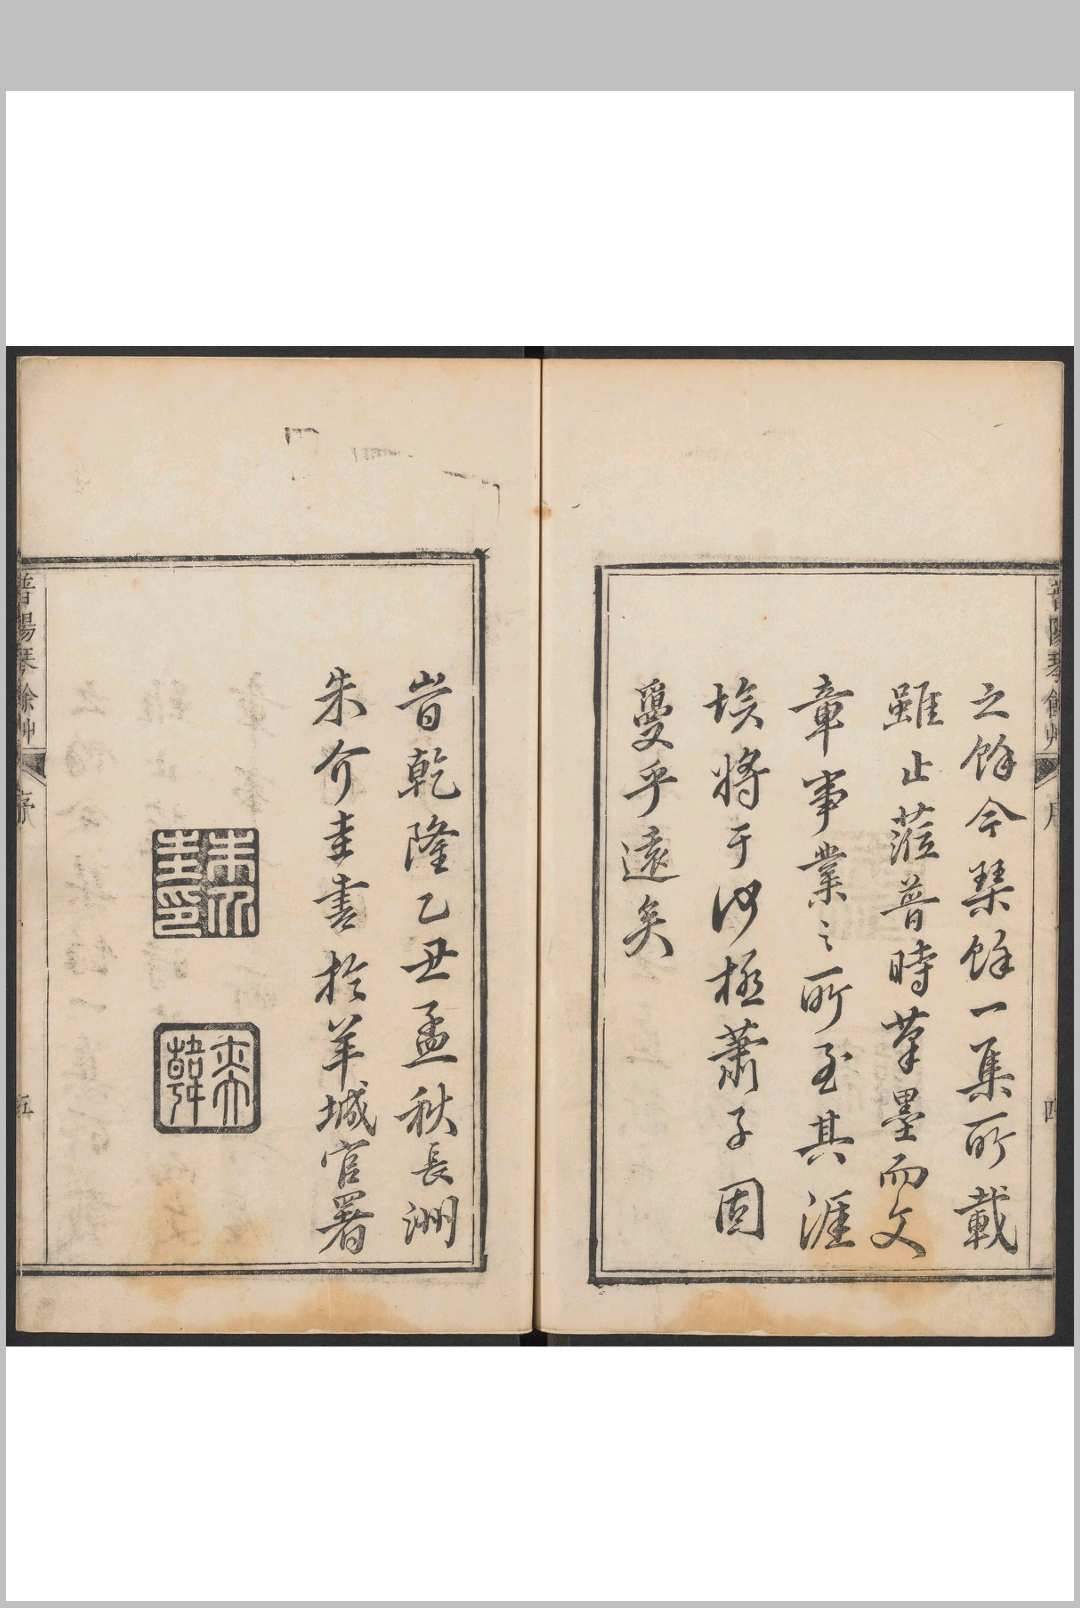 普陽琴餘艸 序 四
之餘今琴餘一集所載
雖止蒞普時筆墨而文
章事業之所至其涯
涘將于何極蕭子固
敻乎遠矣
旹乾隆乙丑孟秋長洲
朱介圭書於羊城官署
朱介圭印
亦韓
普陽琴餘艸 序 五